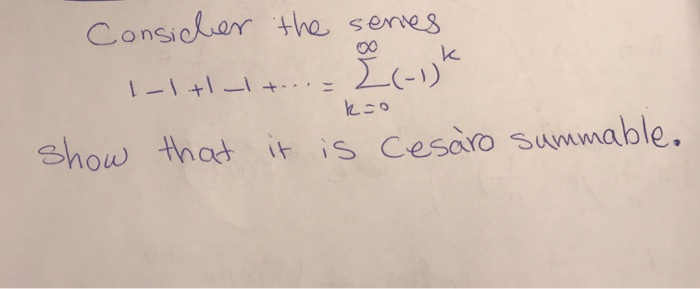 Consider the series
1-1+1-1+... = ∞Σk=0 (-1)^k
Show that it is Cesàro summable.